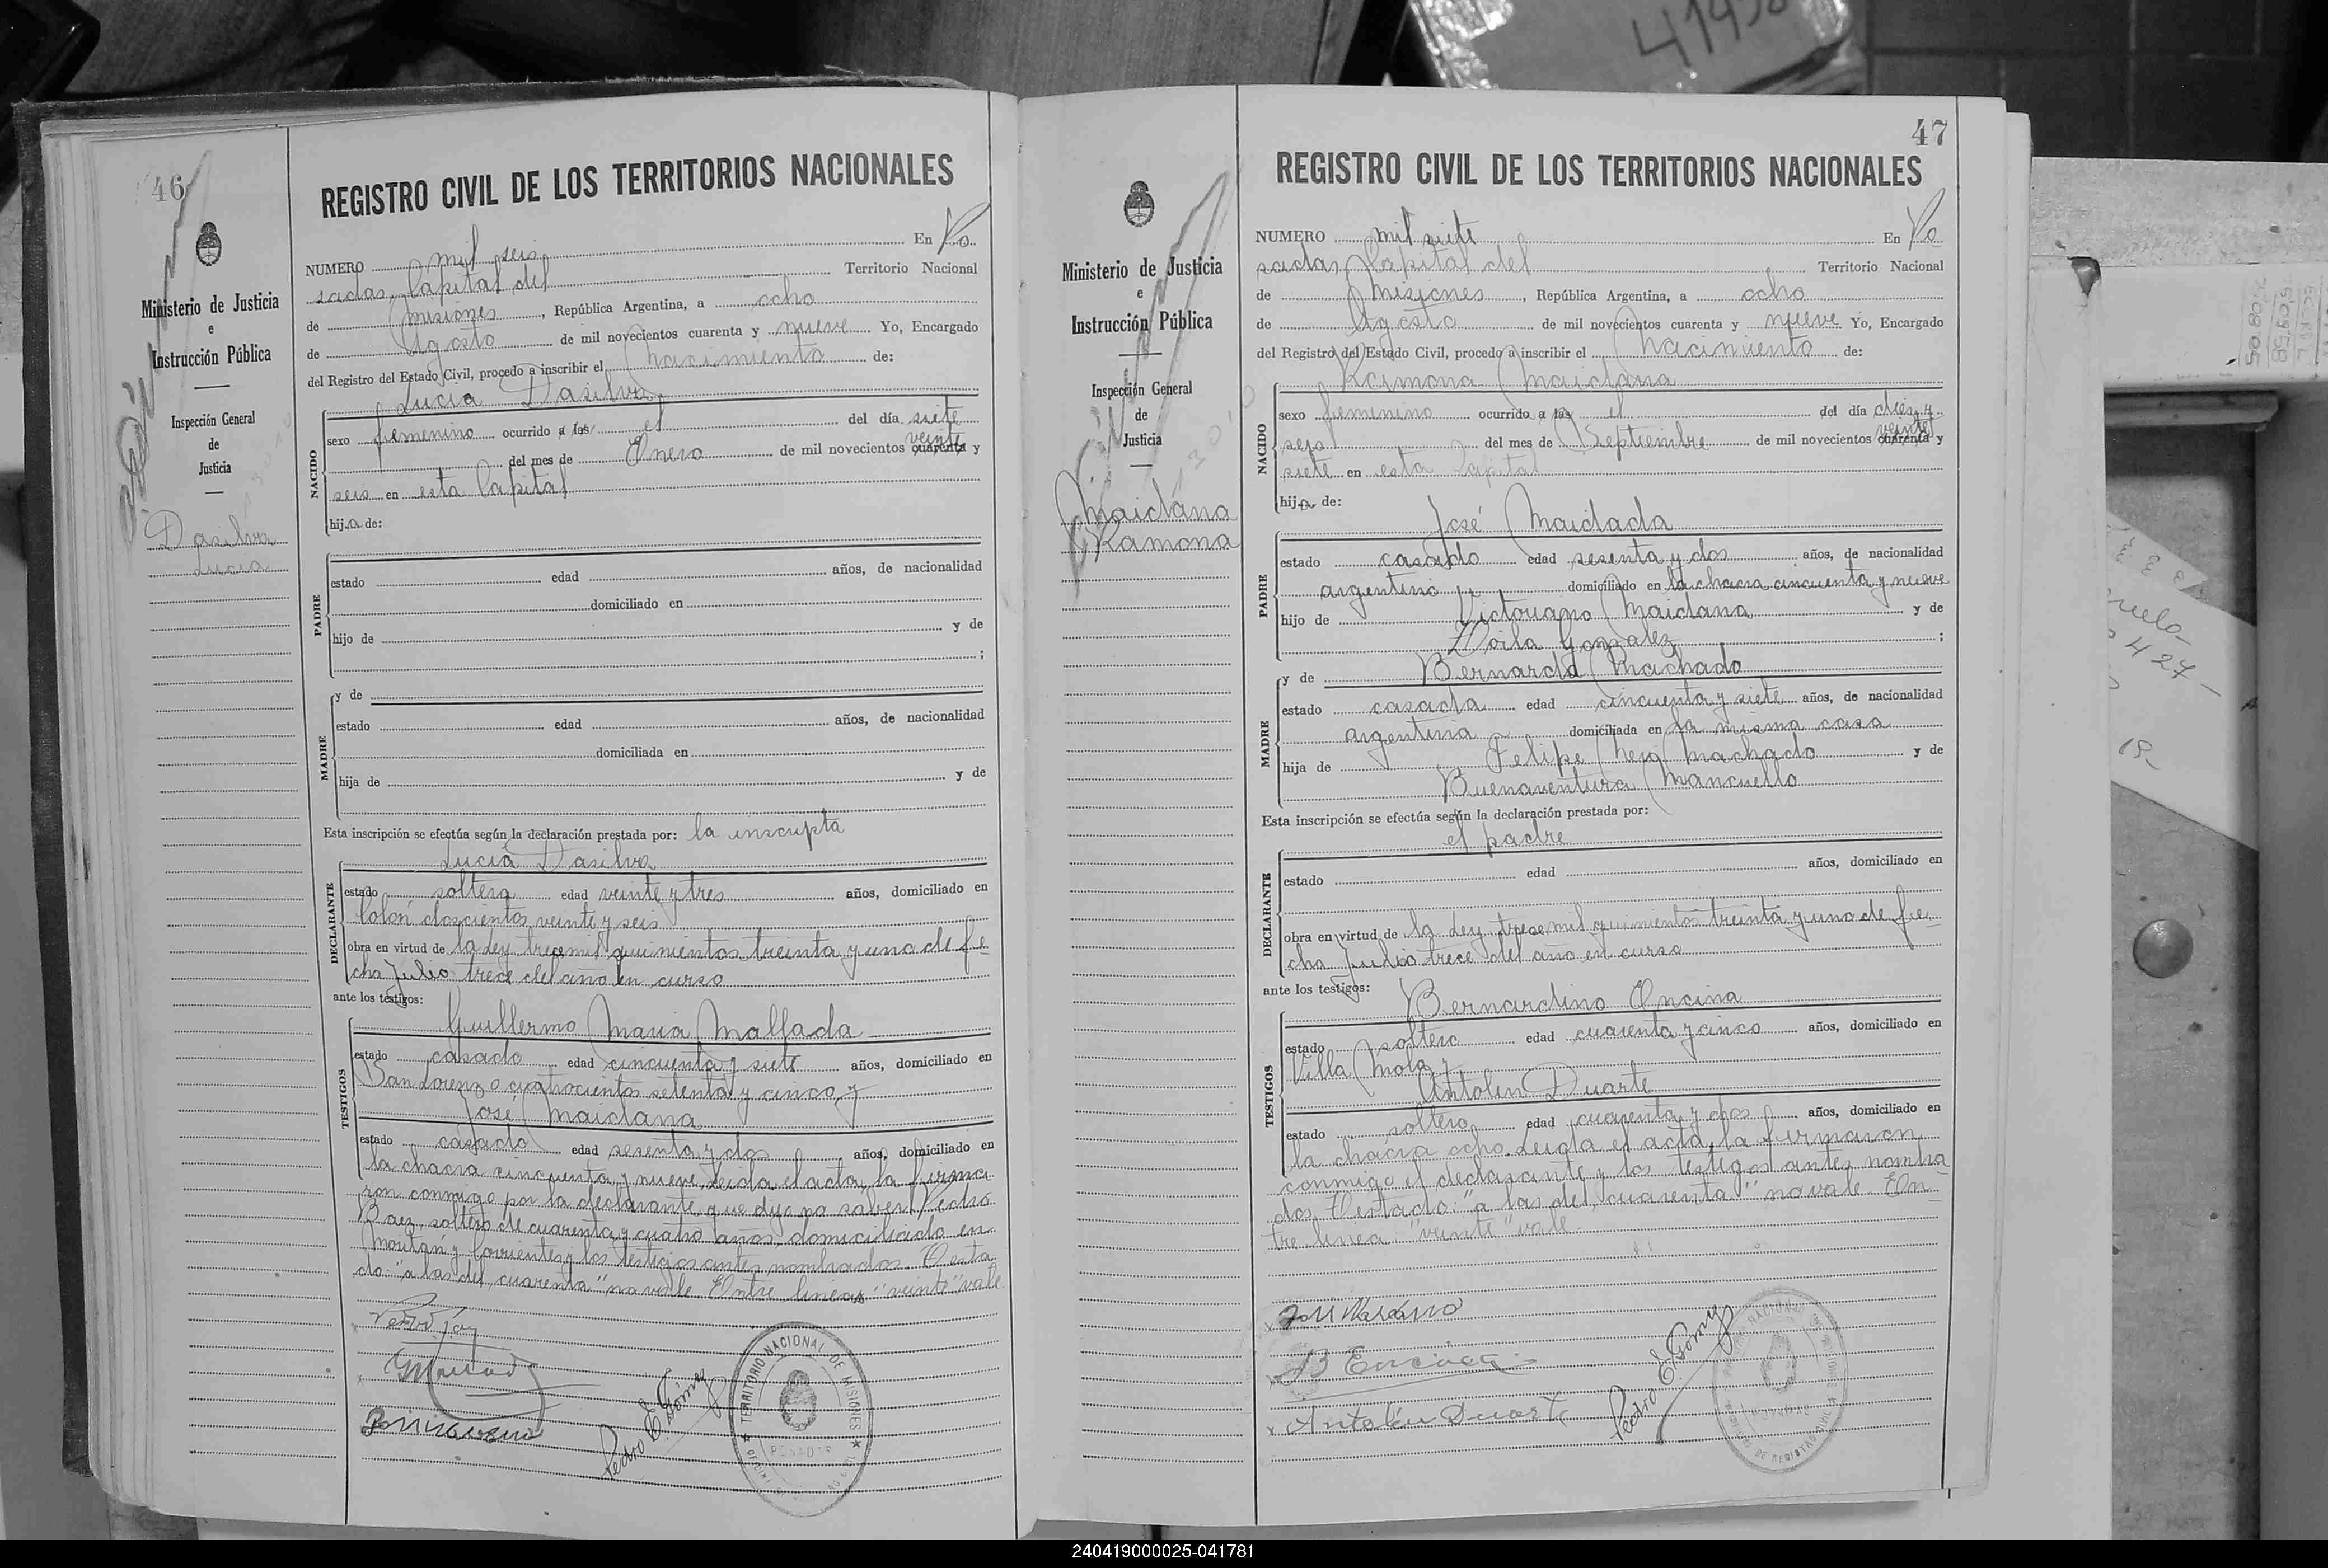 46
Ministerio de Justicia
e
Instrucción Pública
Inspección General
de
Justicia
Dasilva
Lucia
REGISTRO CIVIL DE LOS TERRITORIOS NACIONALES
NUMERO mil seis En Po
sadas, Capital del Territorio Nacional
de Misiones, República Argentina, a ocho
de Agosto de mil novecientos cuarenta y nueve Yo, Encargado
del Registro del Estado Civil, procedo a inscribir el nacimiento de:
Lucia Dasilva
NACIDO
sexo femenino ocurrido a las el del día siete
veinte
del mes de Enero de mil novecientos cuarenta y
seis en esta Capital
hija de:
PADRE
estado edad años, de nacionalidad
domiciliado en
hijo de y de
;
MADRE
y de
estado edad años, de nacionalidad
domiciliada en
hija de y de
Esta inscripción se efectúa según la declaración prestada por: la inscripta
Lucia Dasilva
DECLARANTE
estado soltera edad veinte y tres años, domiciliado en
Colón doscientos veinte y seis
obra en virtud de la Ley trece mil quinientos treinta y uno de fe-
cha Julio trece del año en curso
ante los testigos:
Guillermo Maria Mallada
TESTIGOS
estado casado edad cincuenta y siete años, domiciliado en
San Lorenzo cuatrocientos setenta y cinco y
José Maidana
estado casado edad sesenta y dos años, domiciliado en
la chacra cincuenta y nueve. Leida el acta, la firma
ron conmigo por la declarante que dijo no saber Pedro
Baez, soltero de cuarenta y cuatro años, domiciliado en
Moután y Corrientes y los testigos antes nombrados. Testa
do: "a las del, cuarenta" no vale. Entre lineas: "veinte" vale
Pedro E. Gómez
TERRITORIO NACIONAL DE MISIONES
POSADAS
47
Ministerio de Justicia
e
Instrucción Pública
Inspección General
de
Justicia
Maidana
Ramona
REGISTRO CIVIL DE LOS TERRITORIOS NACIONALES
NUMERO mil siete En Po
sadas, Capital del Territorio Nacional
de Misiones, República Argentina, a ocho
de Agosto de mil novecientos cuarenta y nueve Yo, Encargado
del Registro del Estado Civil, procedo a inscribir el Nacimiento de:
Ramona Maidana
NACIDO
sexo femenino ocurrido a las el del día diez y
veinte
seis del mes de Septiembre de mil novecientos cuarenta y
siete en esta Capital
hija de:
José Maidada
PADRE
estado casado edad sesenta y dos años, de nacionalidad
argentino domiciliado en la chacra cincuenta y nueve
hijo de Victoriano Maidana y de
Zoila Gonzalez ;
MADRE
y de Bernarda Machado
estado casada edad cincuenta y siete años, de nacionalidad
argentina domiciliada en la misma casa
hija de Felipe Neri Machado y de
Buenaventura Mancuello
Esta inscripción se efectúa según la declaración prestada por:
el padre
DECLARANTE
estado edad años, domiciliado en
obra en virtud de la Ley trece mil quinientos treinta y uno de fe-
cha Julio trece del año en curso
ante los testigos:
Bernardino Encina
TESTIGOS
estado soltero edad cuarenta y cinco años, domiciliado en
Villa Mola y
Antolin Duarte
estado soltero edad cuarenta y dos años, domiciliado en
la chacra ocho. Leida el acta, la firmaron
conmigo el declarante y los testigos antes nombra
dos. Testado: "a las del, cuarenta" no vale. En-
tre linea: "veinte" vale
B Encina
Antolin Duarte
Pedro E. Gómez
240419000025-041781